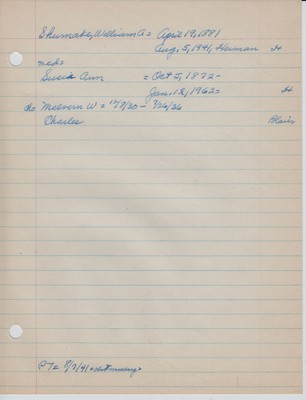 Shumate, William A = April 19, 1881
Aug. 5, 1941, Herman H
med=
Susie Ann = Oct 5, 1872-
Jan. 12, 1962= H
ch= W = 12/7/20 - 7/26/26
Charles Blair
PT= 8/7/41